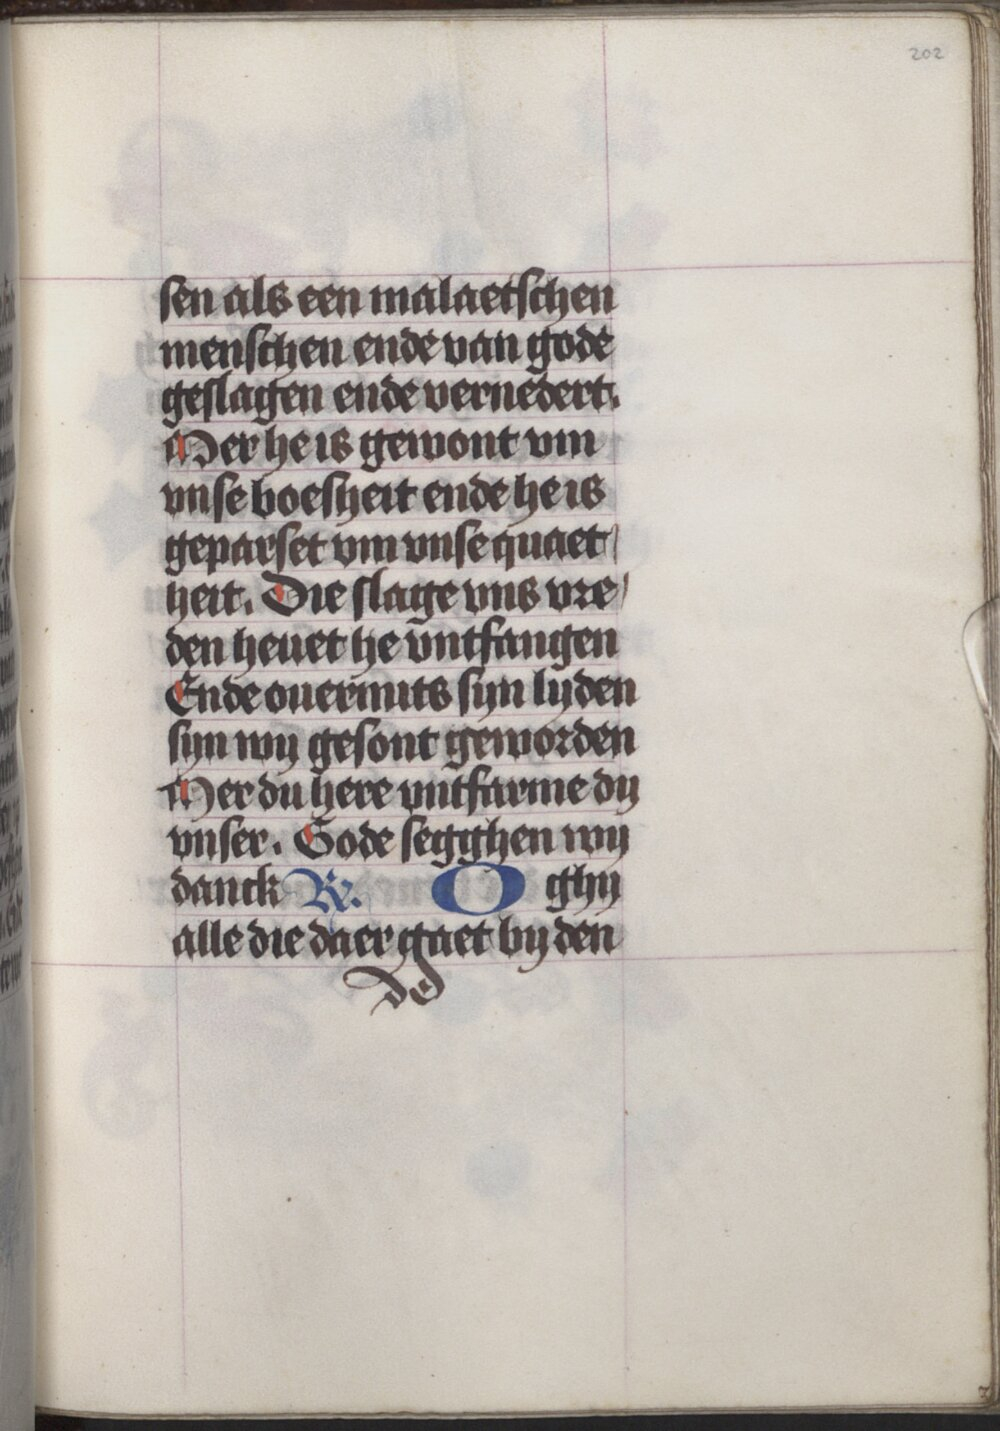 202
sen als een malaetschen
menschen ende van gode
geslagen ende vernedert.
Mer he is gewont vm
vnse boesheit ende he is
geparset vm vnse quaet/
heit. Die slage vns vre/
den heuet he vntfangen
Ende ouermits syn lyden
syn wy gesont geworden
Mer du here vntfarme dy
vnser. Gode segghen wy
danck R. O ghy
alle die daer gaet by den